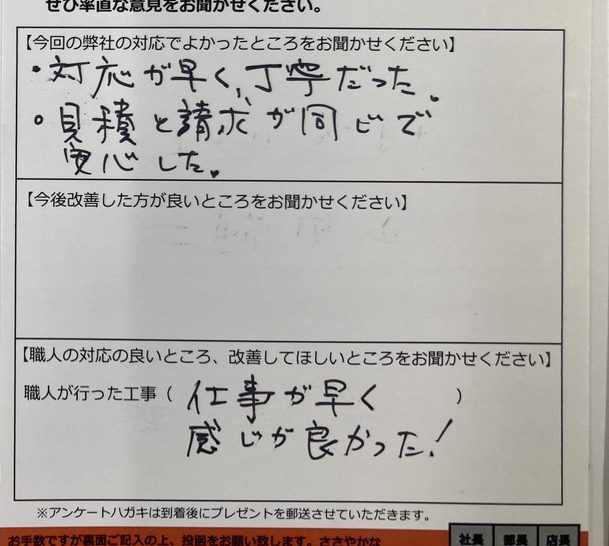 ぜひ率直な意見をお聞かせください。
【今回の弊社の対応でよかったところをお聞かせください】
・対応が早く、丁寧だった。
・見積と請求が同じで
安心した。
【今後改善した方が良いところをお聞かせください】
【職人の対応の良いところ、改善してほしいところをお聞かせください】
職人が行った工事（ 仕事が早く ）
感じが良かった!
※アンケートハガキは到着後にプレゼントを郵送させていただきます。
お手数ですが裏面ご記入の上、投函をお願い致します。ささやかな
社長 部長 店長